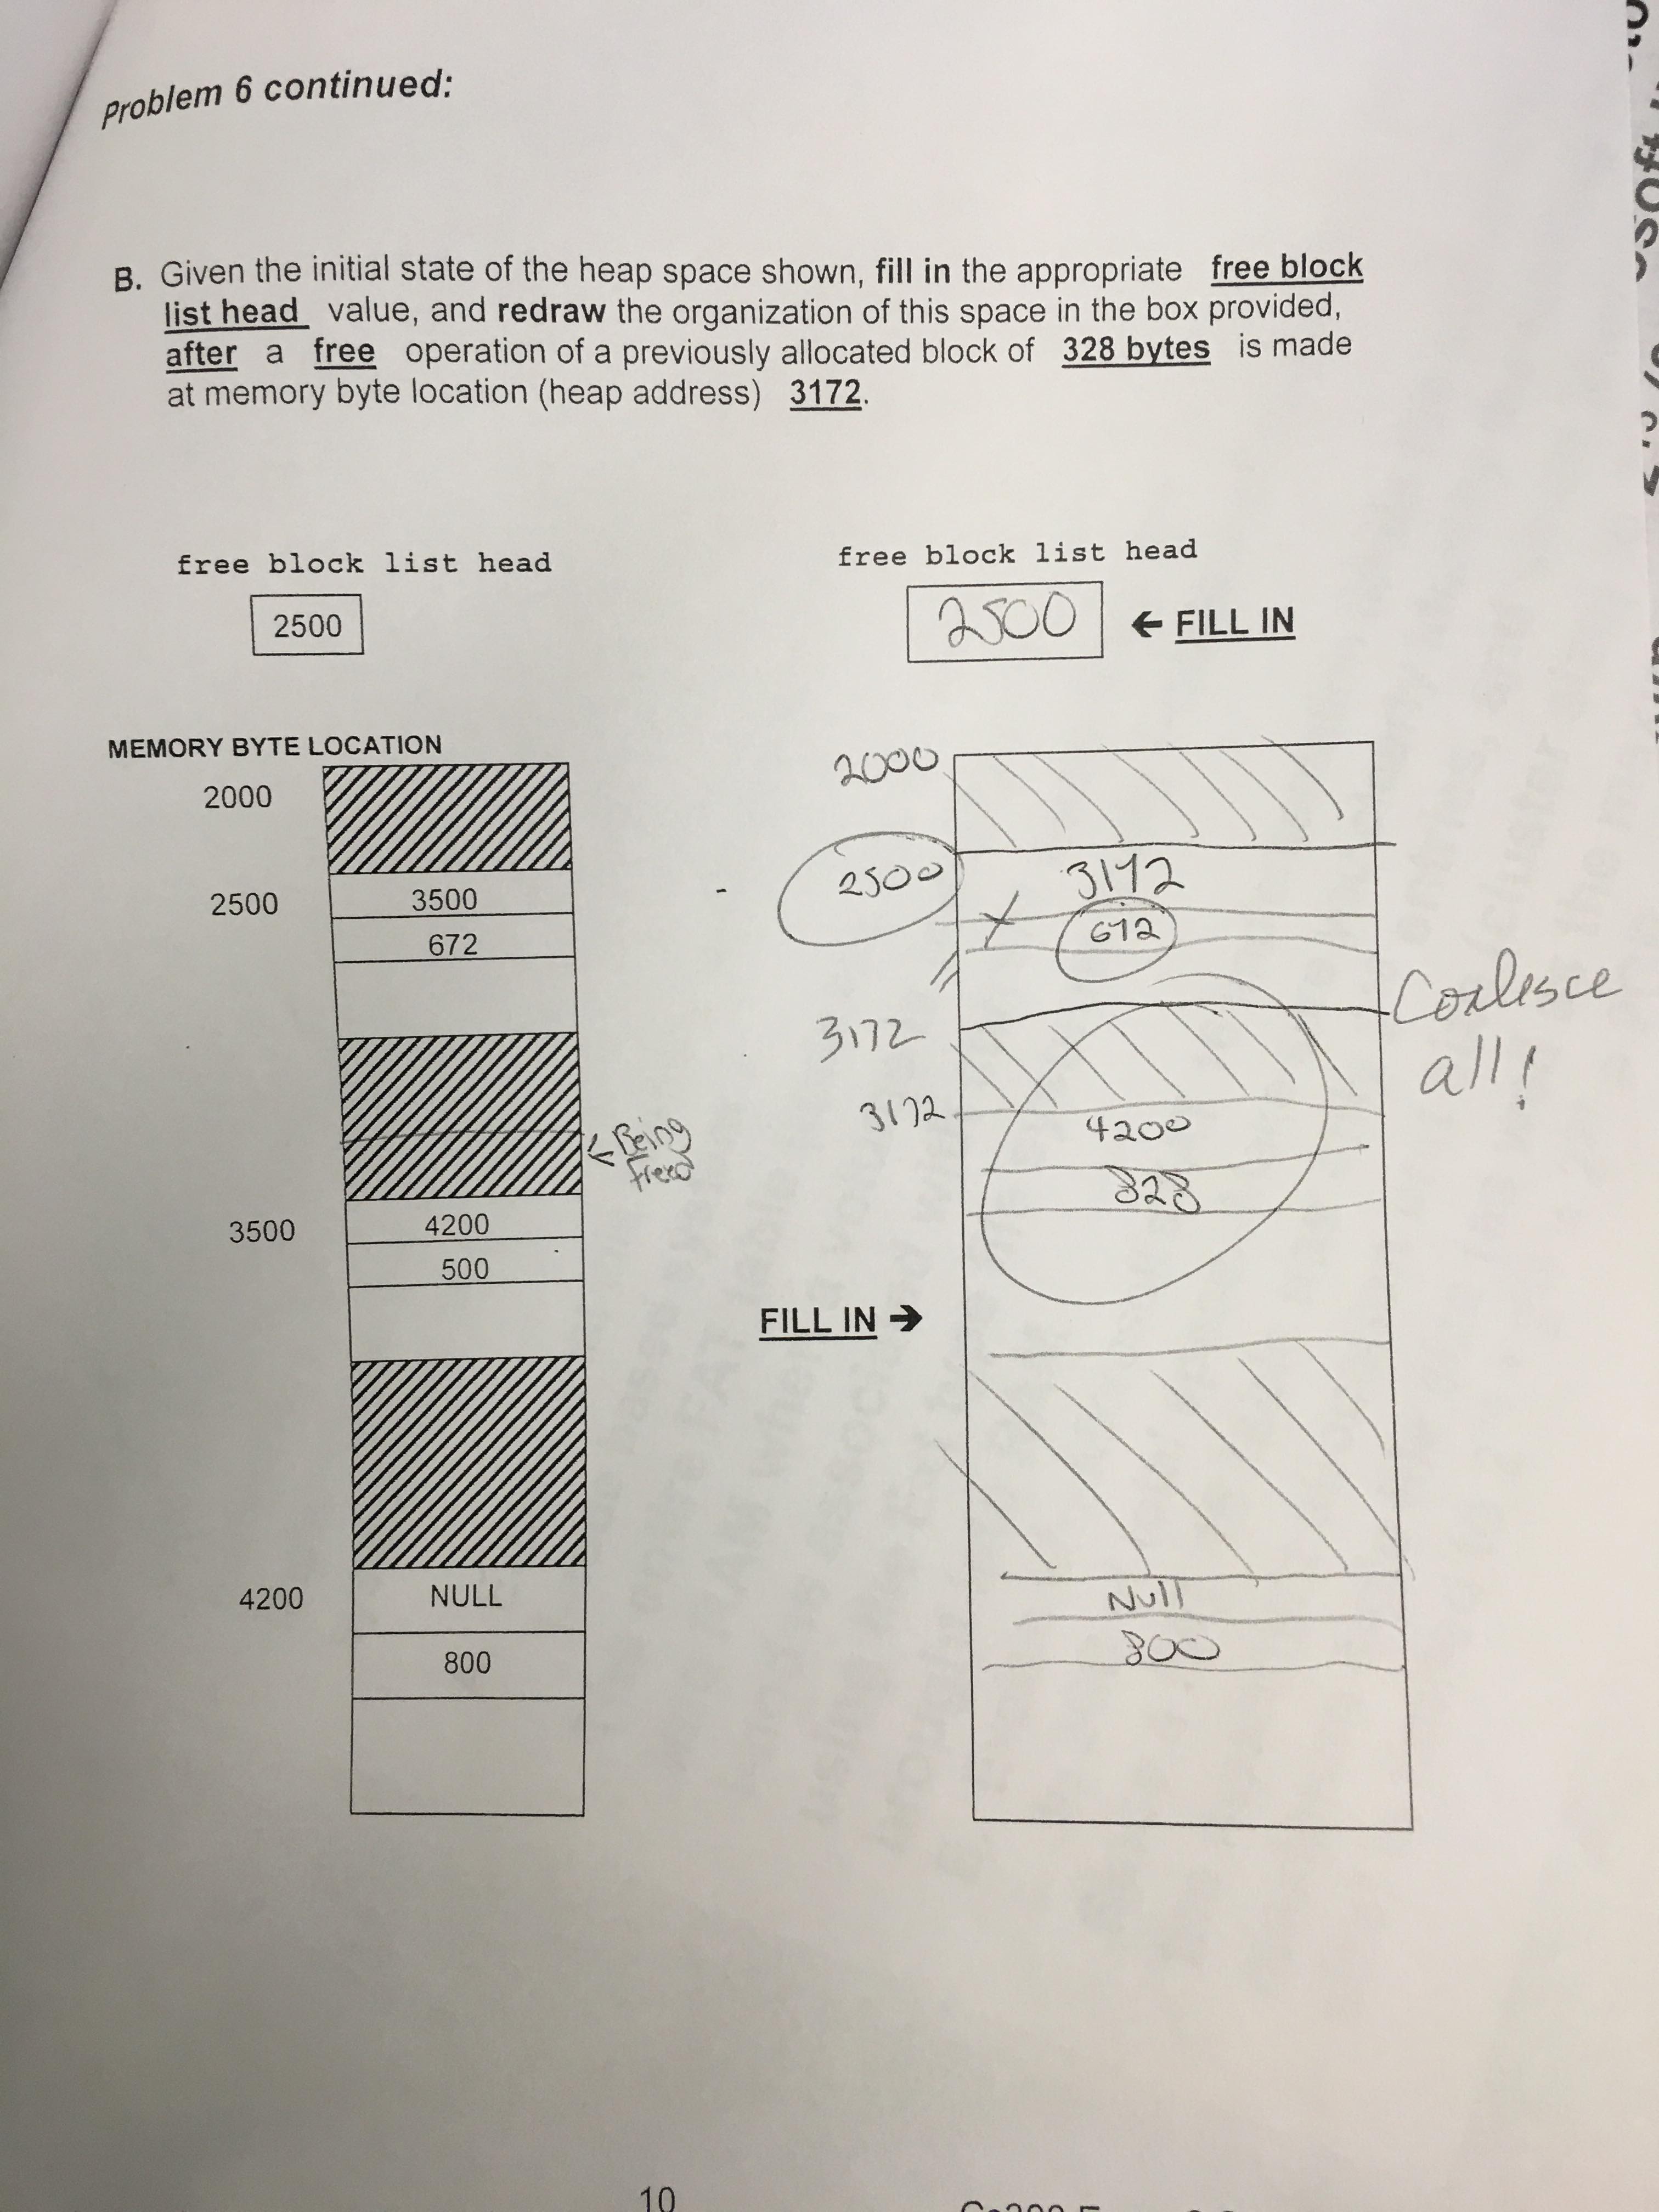 Problem 6 continued:
B. Given the initial state of the heap space shown, fill in the appropriate free block
list head value, and redraw the organization of this space in the box provided,
after a free operation of a previously allocated block of 328 bytes is made
at memory byte location (heap address) 3172.
free block list head
2500
free block list head
2500
← FILL IN
MEMORY BYTE LOCATION
2000
2500
3500
672
← Being
freed
3500
4200
500
4200
NULL
800
FILL IN →
2000
2500
3172
672
3172
3172
4200
828
Null
800
Coalesce
all!
10